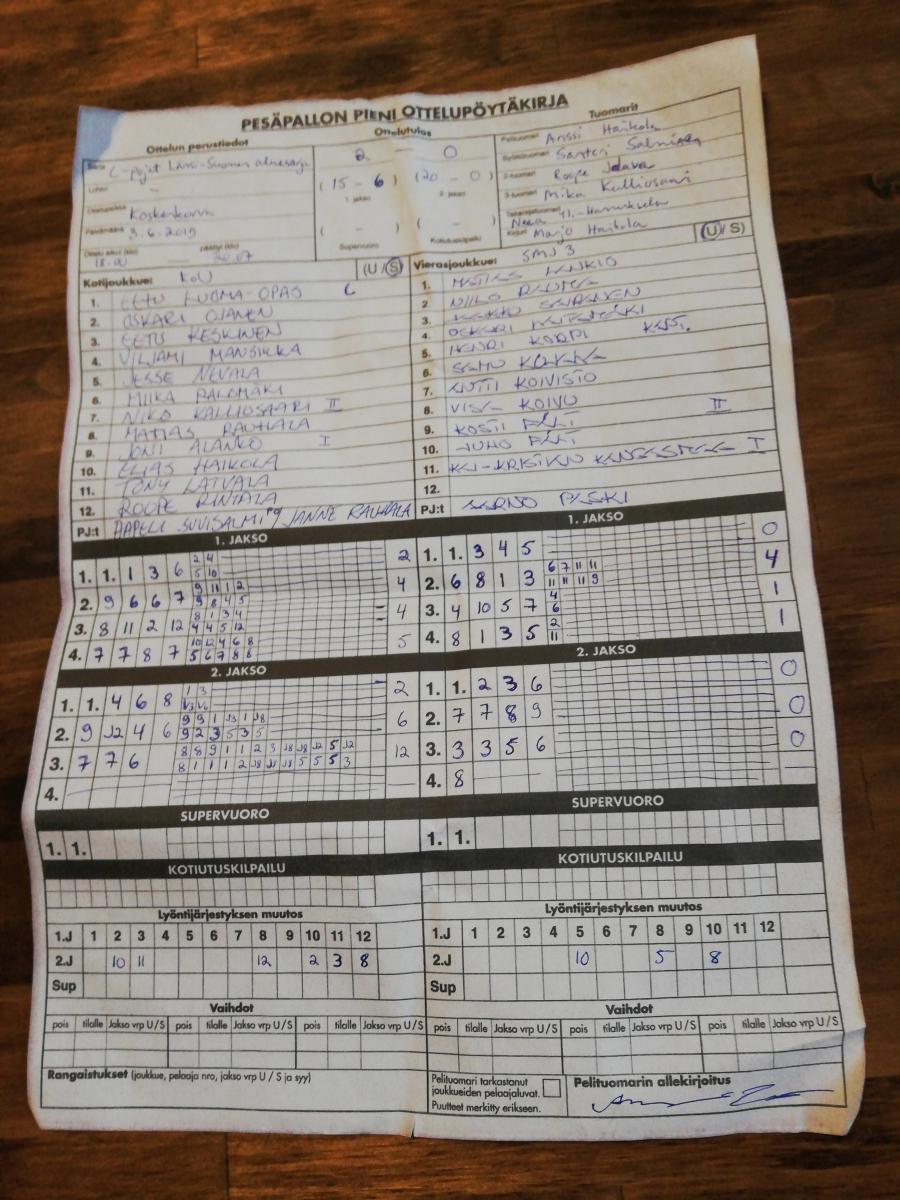 PESÄPALLON PIENI OTTELUPÖYTÄKIRJA
Ottelun perustiedot
Ottelutulos
Tuomarit
Sarja C-pojat Länsi-Suomen aluesarja
2 — 0
Pelituomari Anssi Haikola
Lohko -
(15 - 6) (20 - 0)
Santeri Salminen
1. jakso 2. jakso
2-tuomari Roope
Ottelupaikka Koskenkorva
3-tuomari Mika Kalliosaari
Päivämäärä 3.6.2019
( - ) ( - )
Takarajatuomari Neea Yli-Hannuksela
Supervuoro Kotiutuskilpailu
Kirjuri Marjo Haikola
Ottelu alkoi (klo) 18.00 päättyi (klo) 20.07
Kotijoukkue: KoU (U/S)
Vierasjoukkue: SMJ 3 (U/S)
1. EETU LUOMA-OPAS C
2. OSKARI OJANEN
3. EETU KESKINEN
4. VILJAMI MANSIKKA
5. JESSE NEVALA
6. MIIKA PALOMÄKI
7. NIKO KALLIOSAARI II
8. MATIAS RAUHALA
9. JONI ALANKO I
10. ELIAS HAIKOLA
11. TONY LATVALA
12. ROOPE RINTALA
PJ:t AAPELI SUVISALMI JANNE RAUHALA
1.
2. NIILO
3.
4. OSKARI
5. HENRI KORPI
6. SAMU
7. ANTTI KOIVISTO
8. KOIVU II
9.
10. JUHO
11. I
12.
PJ:t
1. JAKSO
1. 1. 1 3 6 2 4 2
5 10
2. 9 6 6 7 9 11 1 2 4
9 8 4 5
3. 8 11 2 12 8 1 3 4 4
4 4 5 12
4. 7 7 8 7 10 12 4 6 8 5
5 6 7 8 8
1. JAKSO
1. 1. 3 4 5 0
2. 6 8 1 3 6 7 11 11 4
11 11 11 9
3. 4 10 5 7 4 1
6
4. 8 1 3 5 2 1
11
2. JAKSO
1. 1. 4 6 8 1 3 2
2. 9 J2 4 6 9 9 1 J3 1 J8 6
9 2 3 5 3 5
3. 7 7 6 8 8 9 1 1 2 3 J8 J8 J2 5 J2 12
4.
2. JAKSO
1. 1. 2 3 6 0
2. 7 7 8 9 0
3. 3 3 5 6 0
4. 8
SUPERVUORO
1. 1.
SUPERVUORO
1. 1.
KOTIUTUSKILPAILU
KOTIUTUSKILPAILU
Lyöntijärjestyksen muutos
1.J 1 2 3 4 5 6 7 8 9 10 11 12
2.J 10 11 12 2 3 8
Sup
Lyöntijärjestyksen muutos
1.J 1 2 3 4 5 6 7 8 9 10 11 12
2.J 10 5 8
Sup
Vaihdot
pois tilalle Jakso vrp U/S pois tilalle Jakso vrp U/S pois tilalle Jakso vrp U/S
Vaihdot
pois tilalle Jakso vrp U/S pois tilalle Jakso vrp U/S pois tilalle Jakso vrp U/S
Rangaistukset (joukkue, pelaaja nro, jakso vrp U / S ja syy)
Pelituomari tarkastanut
joukkueiden pelaajaluvat.
Puutteet merkitty erikseen.
Pelituomarin allekirjoitus